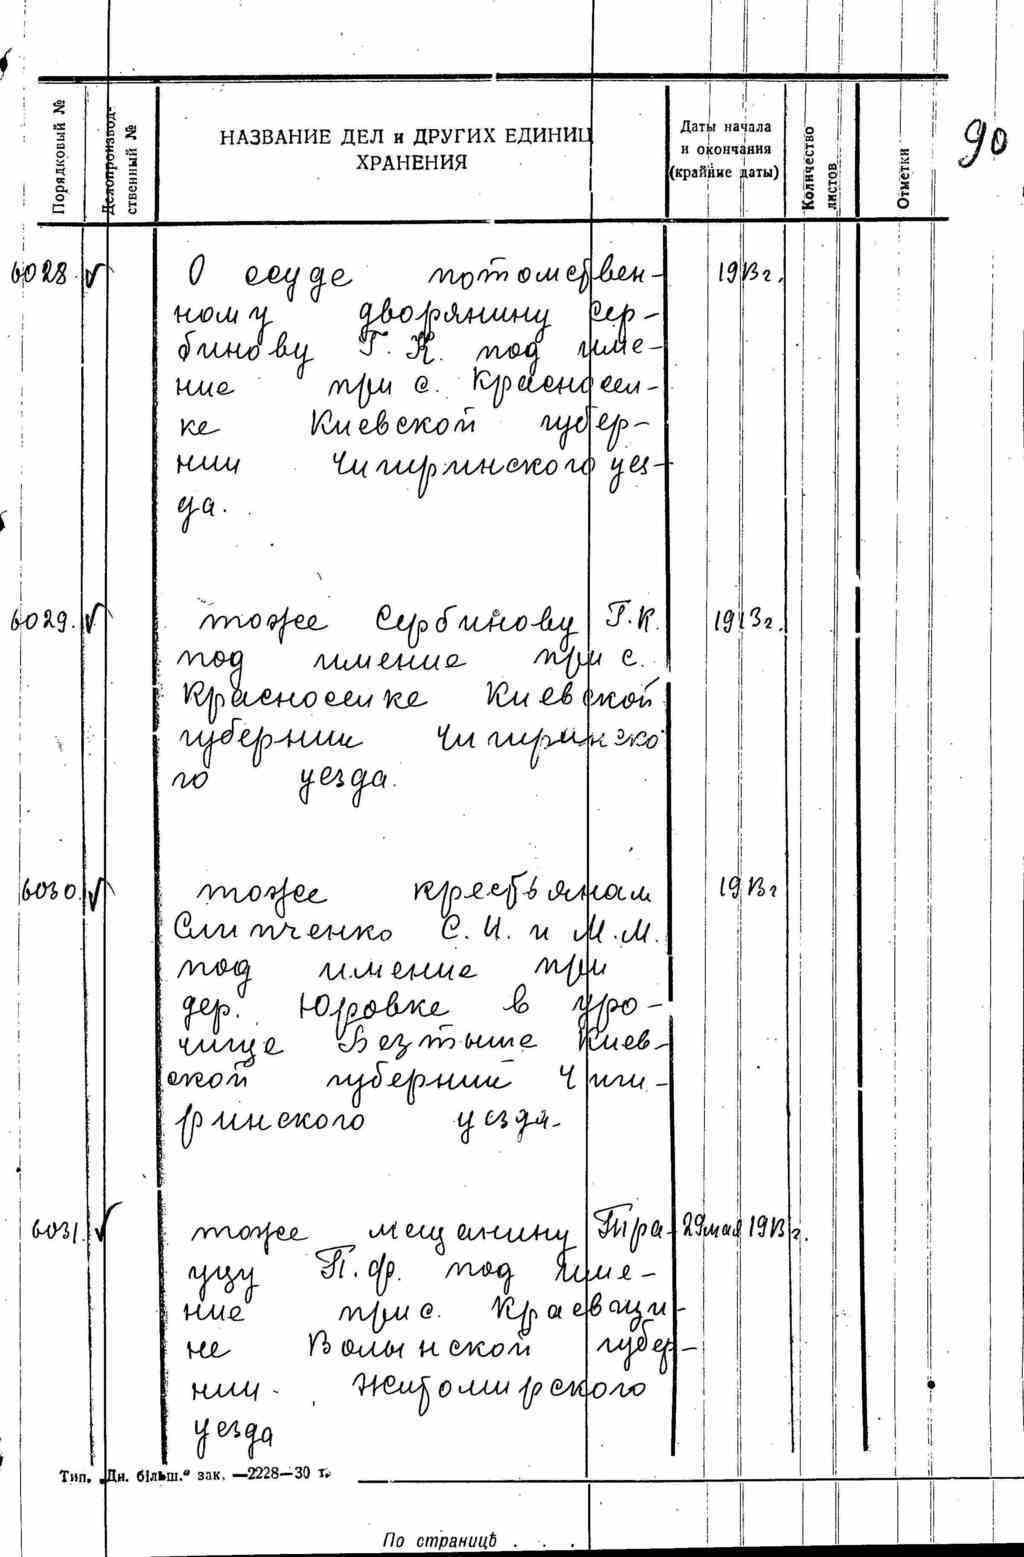 90
Порядковый №
Делопроизвод-
ственный №
НАЗВАНИЕ ДЕЛ и ДРУГИХ ЕДИНИЦ
ХРАНЕНИЯ
Даты начала
и окончания
(крайние даты)
Количество
листов
Отметки
6028. О ссуде потомствен- 1913 г.
ному дворянину Сер-
бинову Г. К. под име-
ние при с. Красносел-
ке Киевской губер-
нии Чигиринского уез-
да.
6029. тоже Сербинову Г. К. 1913 г.
под имение при с.
Красноселке Киевской
губернии Чигиринско
го уезда.
6030. тоже крестьянам 1913 г
Слипченко С. И. и М. М.
под имение при
дер. Юровке в уро-
чище Безтыше Киев-
ской губернии Чиги-
ринского уезда.
6031. тоже мещанину Пра- 29 мая 1913 г.
уцу П. Ф. под име-
ние при с. Краевщи-
не Волынской губер-
нии Житомирского
уезда
Тип. „Дн. більш.“ зак. —2228—30 т.
По страницѣ . . .